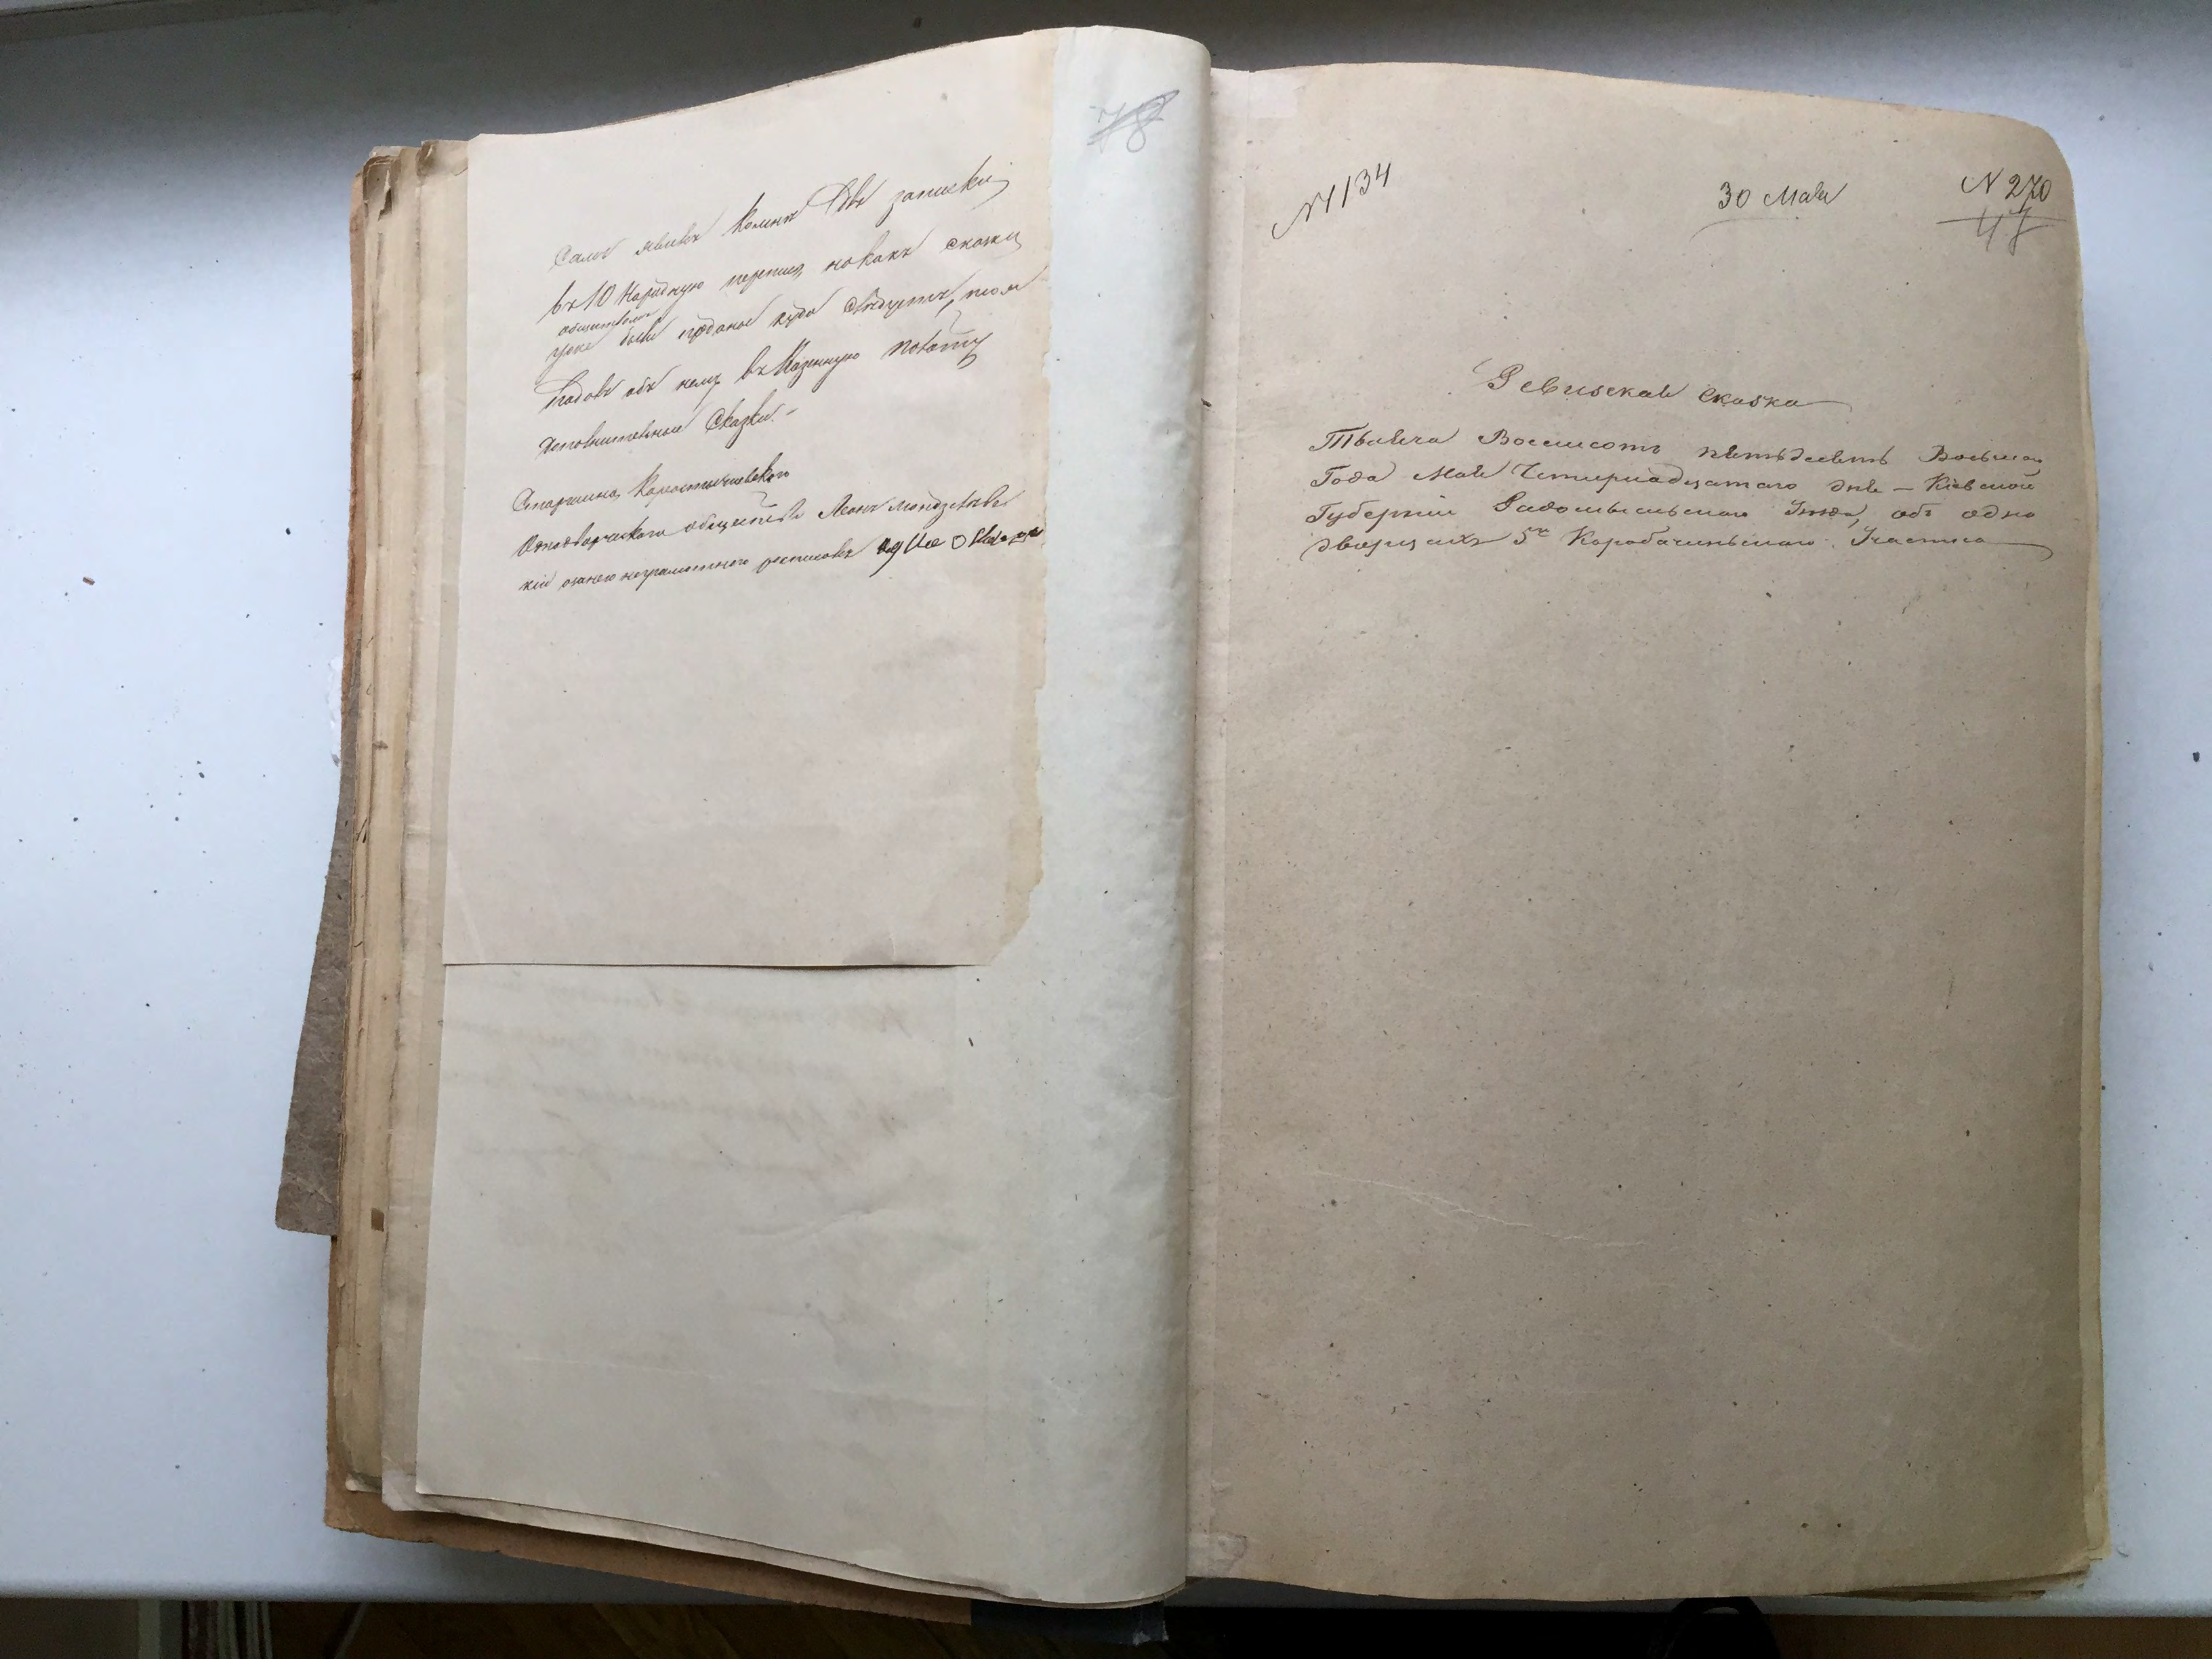 78
Самъ явивъ для записки
въ 10 Народную перепись но какъ сказки
обществомъ
уже были поданы куда слѣдуетъ, то
подавъ объ нему въ Казенную Полату
дополнительные Сказки. –
Старшина Коростышевского
Однодворческого общества Леонъ
кій а за него неграмотного росписался
N 1134
30 Мая
N 270
47
Ревизская сказка
Тысяча Восемсотъ пятьдесятъ Восьмаго
Года Мая Четырнадцатаго дня – Кіевской
Губерніи Радомысльскаго Уѣзда, объ одно
дворцахъ 5го Коробачинскаго Участка